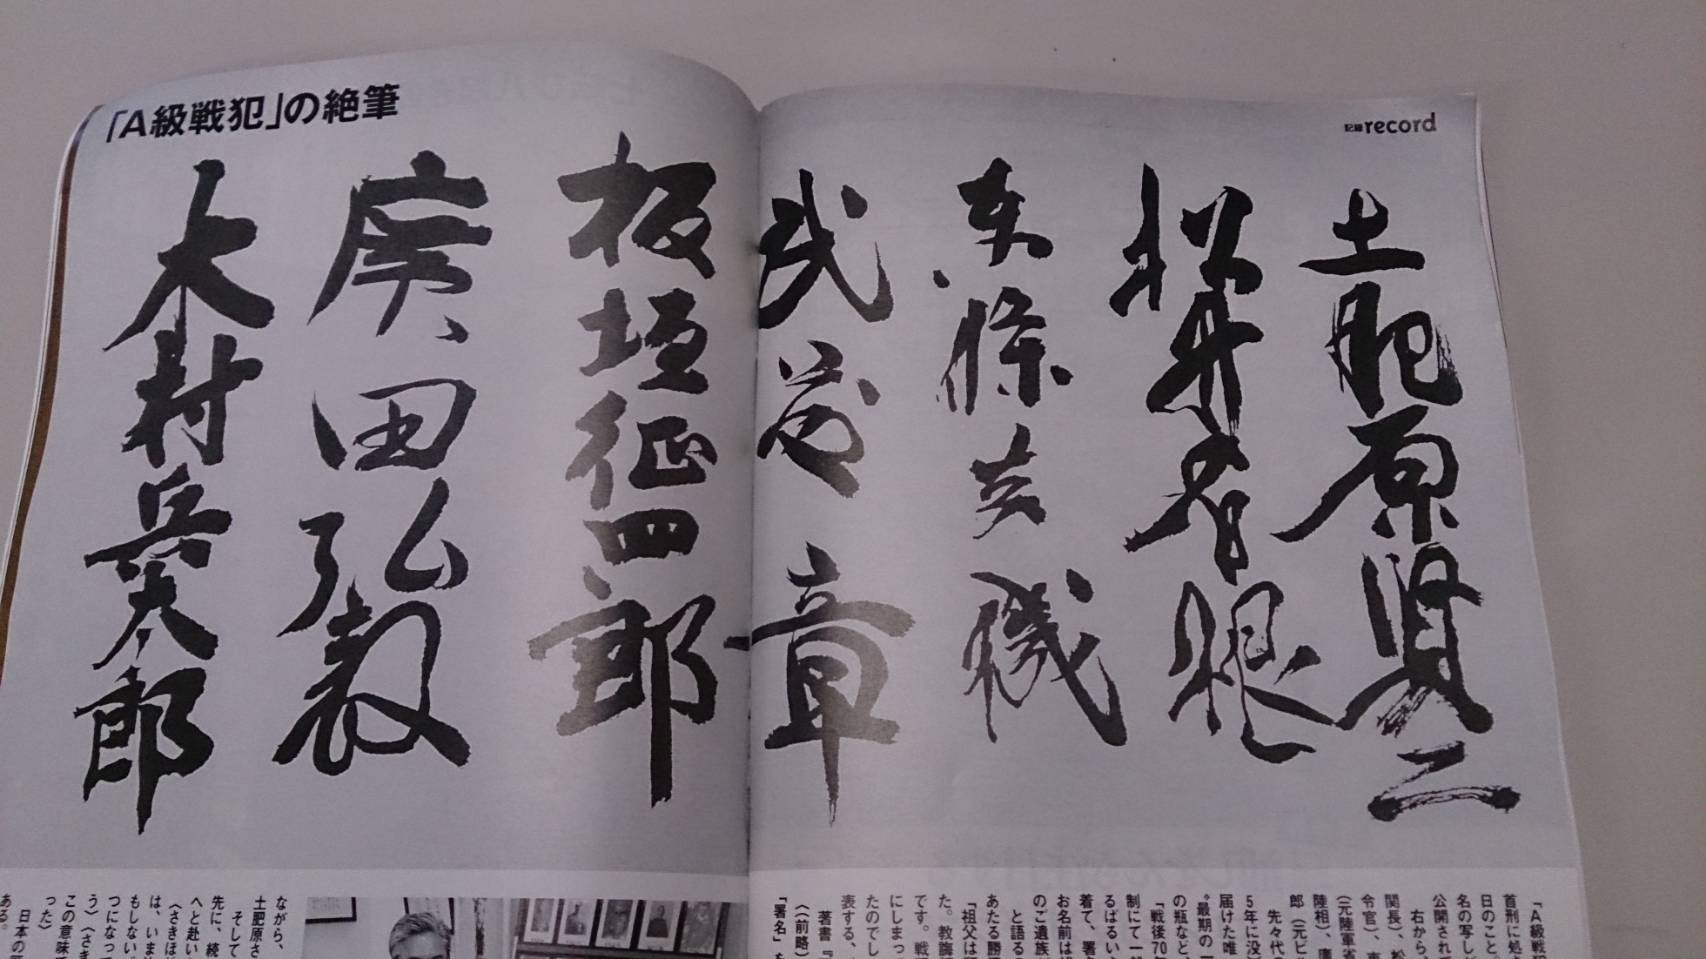 「A級戦犯」の絶筆
記録record
土肥原賢二
松井石根
東條英機
武藤章
板垣征四郎
廣田弘毅
木村兵太郎
「A級戦犯
首刑に処
日のこと、
名の写し
公開されて
右から、
関長）、松
令官）、東
（元陸軍省
陸相）、廣
郎（元ビル
先々代の
5年に没
届けた唯
“最期の一
の瓶など、
「戦後70年
制にて一般
るばるいら
着て、署名
お名前は
のご遺族が
と語るの
あたる勝
「祖父は
た。教誨
です。戦
にしまって
たのでし
表する、
著書『
〈（前略）
「署名」を
ながら、
土肥原さ
そして
先に、続
へと赴い
〈さきほ
は、いま
もしない。
つになっ
う〉（さ
この意味
った〉
日本の
ある。